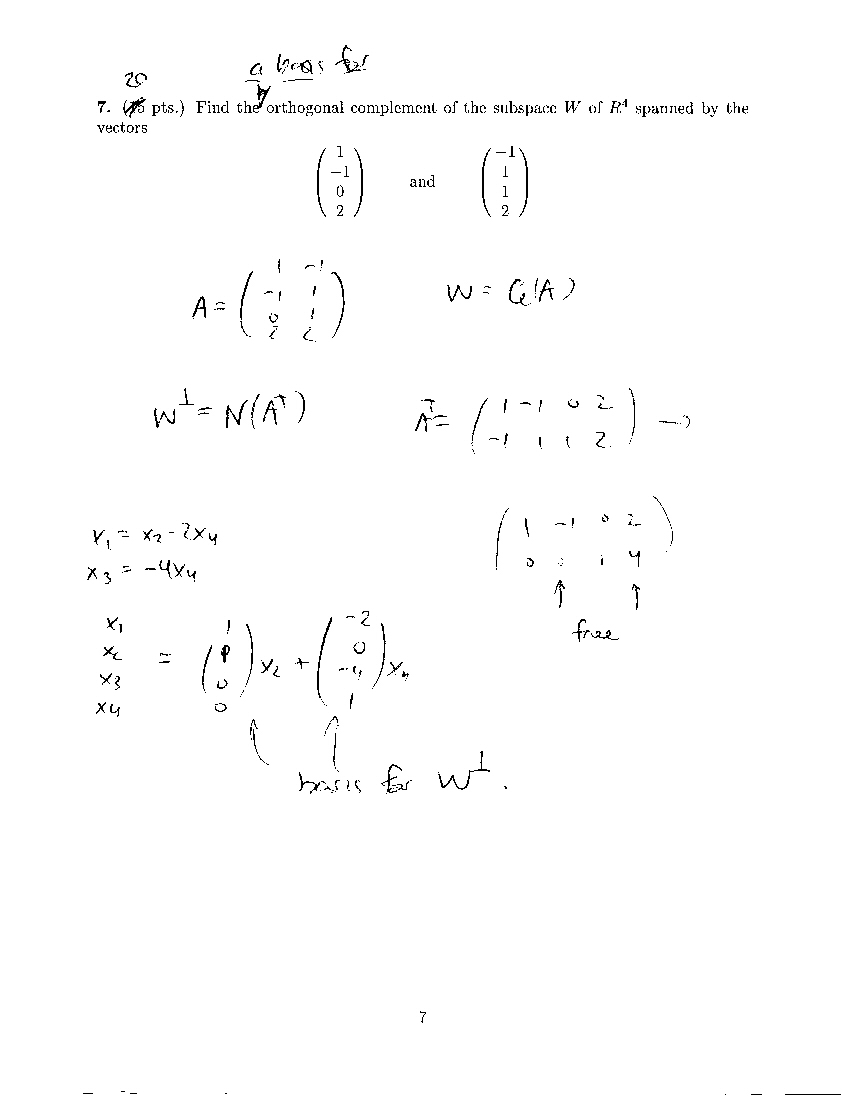 a basis for
20
7. (15 pts.) Find the orthogonal complement of the subspace W of R⁴ spanned by the
vectors
( 1 ) ( −1 )
( −1 ) ( 1 )
( 0 ) and ( 1 )
( 2 ) ( 2 )
A = ( 1 −1 ; −1 1 ; 0 1 ; 2 2 ) W = C(A)
W⊥ = N(Aᵀ) Aᵀ = ( 1 −1 0 2 ; −1 1 1 2 ) →
( 1 −1 0 2 ; 0 0 1 4 )
x₁ = x₂ − 2x₄
x₃ = −4x₄
↑ ↑
free
x₁ ( 1 ) ( −2 )
x₂ = ( 1 ) x₂ + ( 0 ) x₄
x₃ ( 0 ) ( −4 )
x₄ ( 0 ) ( 1 )
basis for W⊥.
7